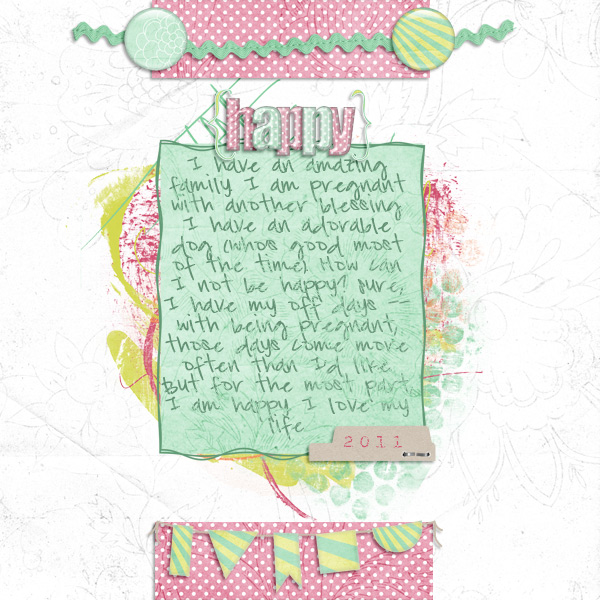 happy
I have an amazing
family. I am pregnant
with another blessing
I have an adorable
dog (whos good most
of the time) How can
I not be happy? Sure,
I have my off days --
with being pregnant,
those days come more
often than I'd like.
But for the most part
I am happy. I love my
life
2011